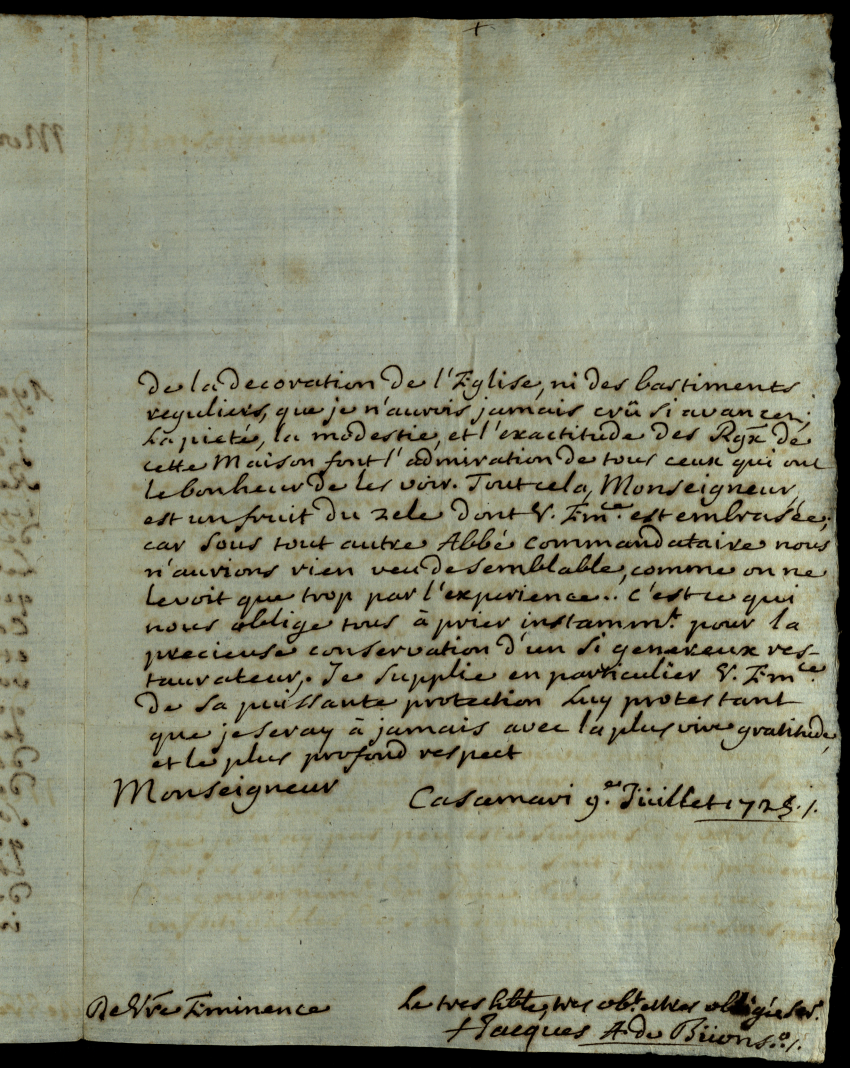 de la decoration de l'Eglise, ni des bastiments
reguliers, que je n'aurois jamais crû si avancez;
La pieté, la modestie, et l'exactitude des Rgx de
cette Maison font l'admiration de tous ceux qui ont
le bonheur de les voir. Tout cela, Monseigneur,
est un fruit du zele dont V. Emce est embrasée;
car sous tout autre Abbé commandataire nous
n'aurions rien veu de semblable, comme on ne
le voit que trop par l'experience.. c'est ce qui
nous oblige tous à prier instammt. pour la
precieuse conservation d'un si genereux res-
taurateur. Je supplie en particulier V. Emce
de sa puissante protection Luy protestant
que je seray à jamais avec la plus vive gratitude,
et le plus profond respect
Monseigneur
Casaemari 9e. Juillet 1725./.
De Vre Eminence
Le tres hble, tres obt. et tres obligé ser.
+ Jacques A. de